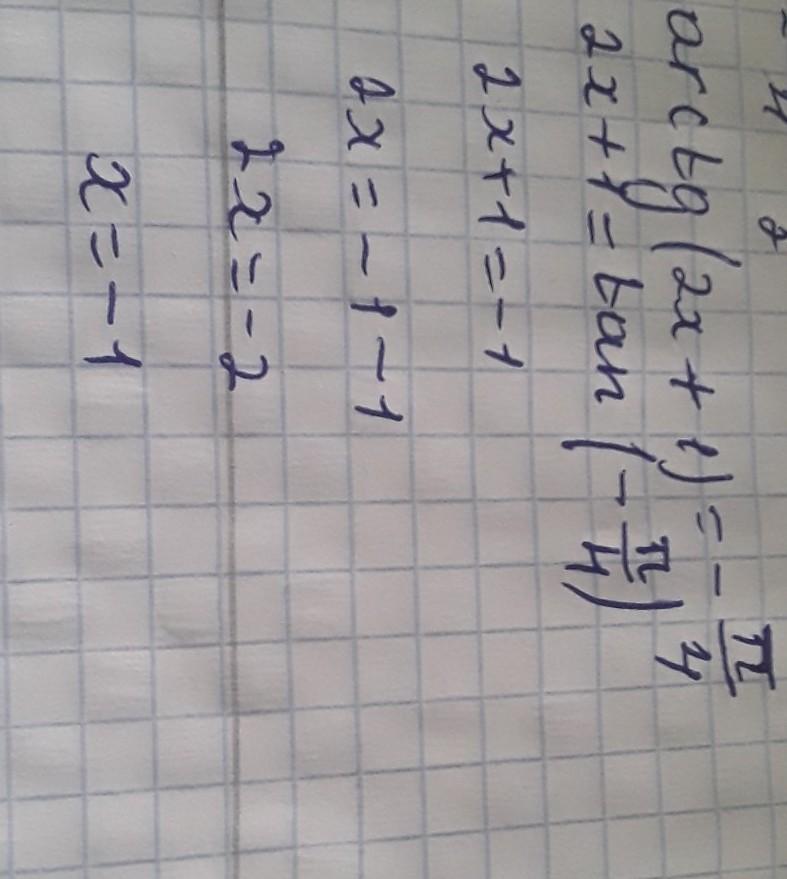 arctg(2x+1) = -π/4
2x+1 = tan(-π/4)
2x+1 = -1
2x = -1-1
2x = -2
x = -1